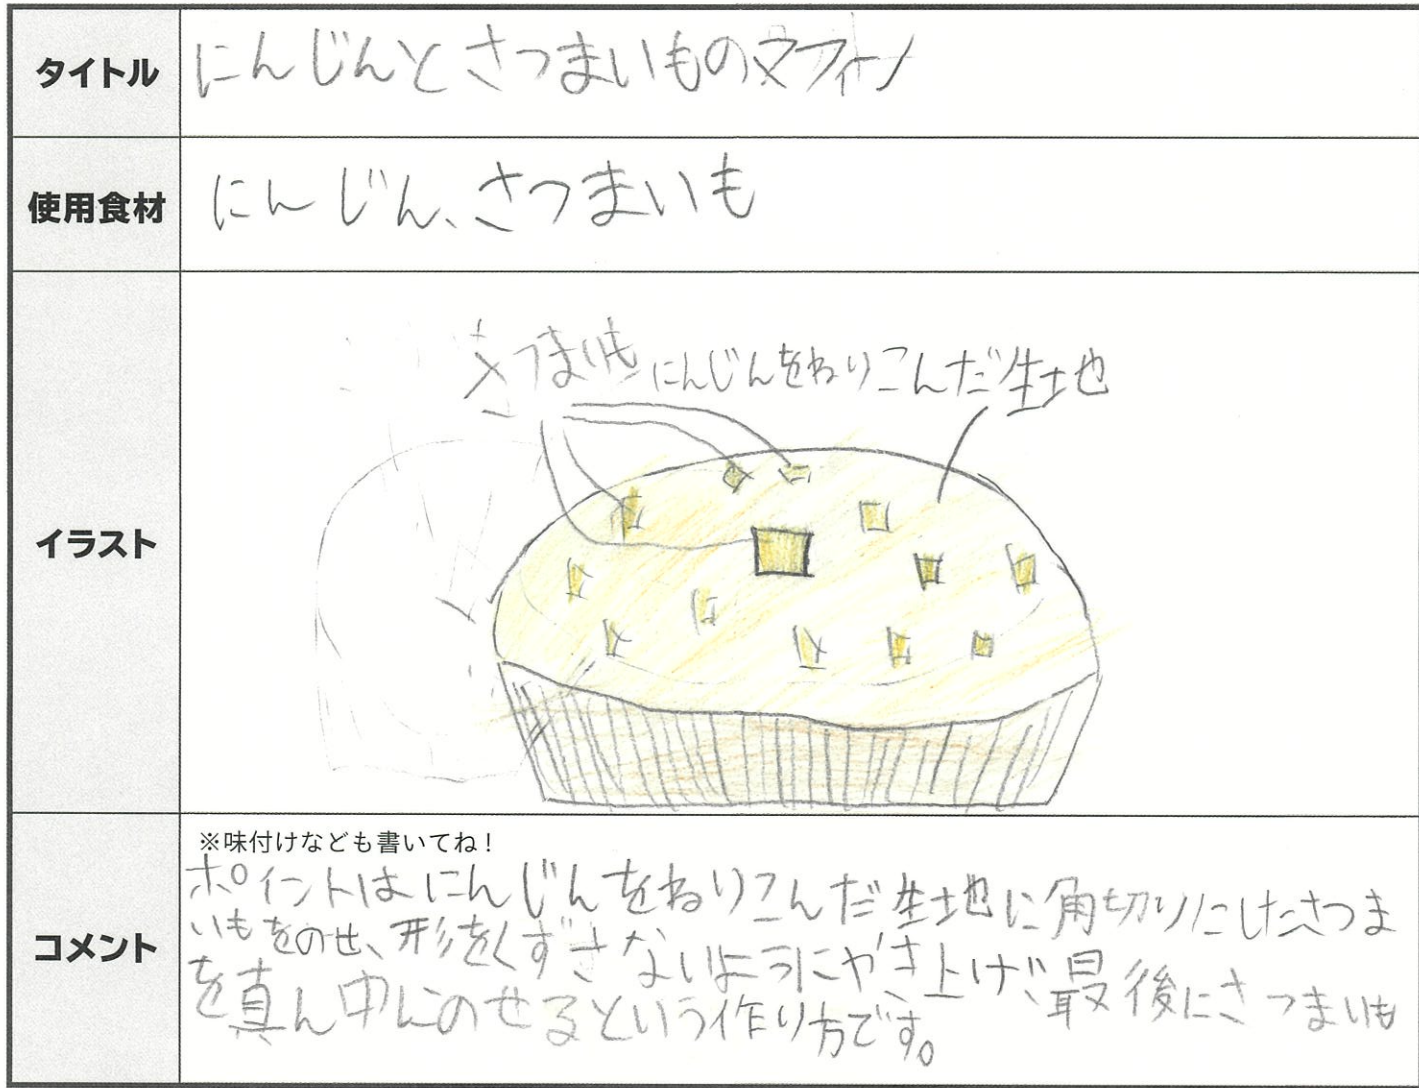 タイトル
にんじんとさつまいものマフィン
使用食材
にんじん、さつまいも
イラスト
さつまいも
にんじんをねりこんだ生地
コメント
※味付けなども書いてね!
ポイントはにんじんをねりこんだ生地に角切りにしたさつま
いもをのせ、形をくずさないようにやき上げ、最後にさつまいも
を真ん中にのせるという作り方です。